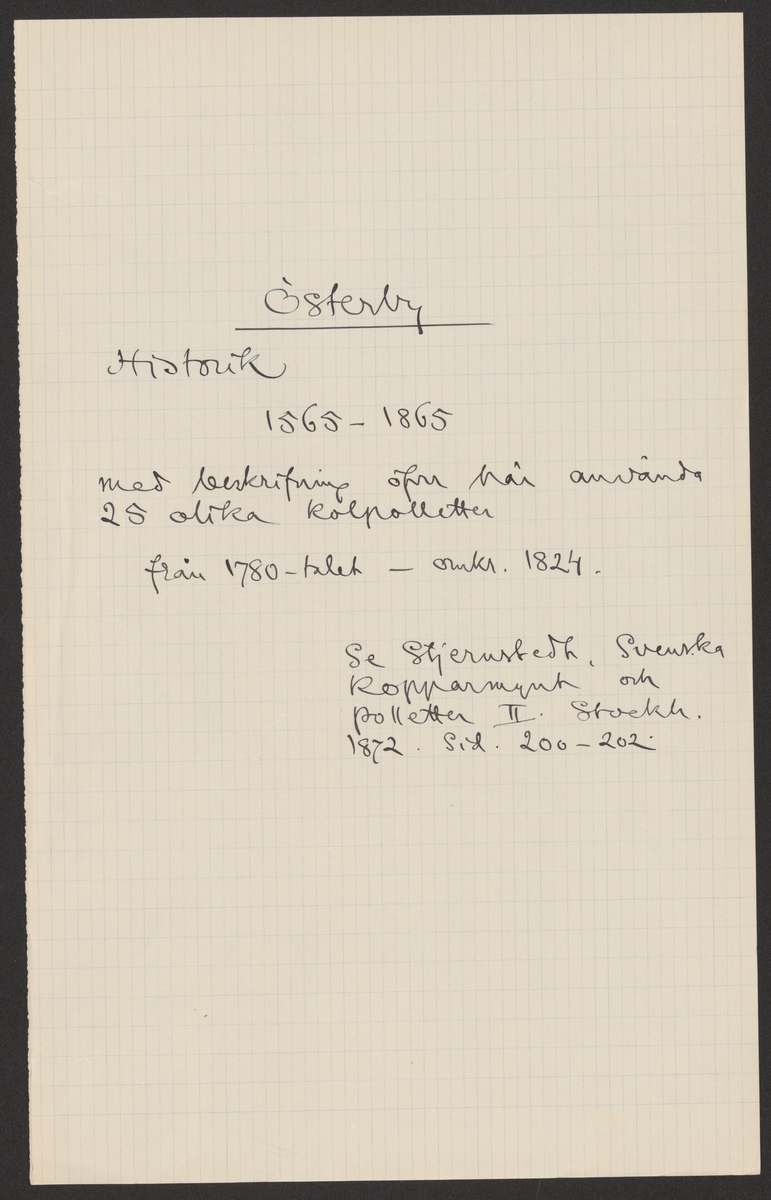 Österby
Historik
1565-1865
med beskrifning öfver här använda
25 olika kolpolletter
från 1780-talet - omkr. 1824.
Se Stjernstedt, Svenska
Kopparmynt och
polletter II. Stockh.
1872. Sid. 200-202.